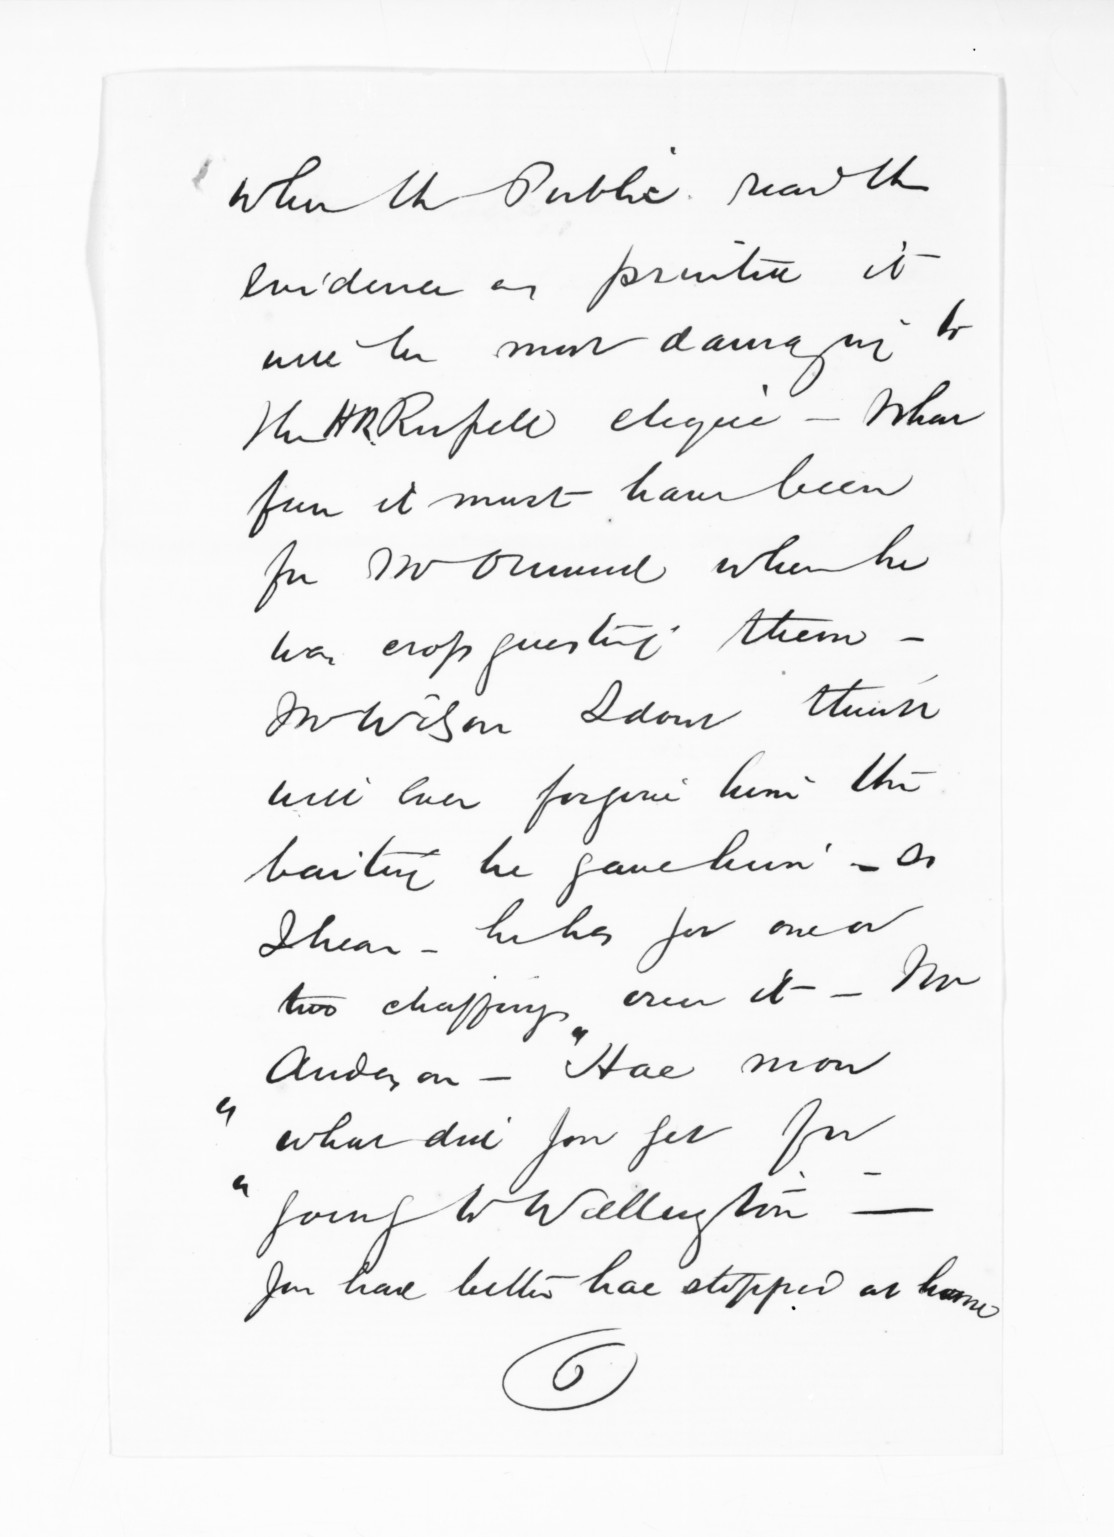 when the Public read the
evidence as printed it
will be most damaging to
the HR Russell clique — What
fun it must have been
for Mr Ormond when he
was cross questing them —
Mr Wilson I dont think
will ever forgive him the
baiting he gave him — as
I hear — he has got one or
two chaffings over it — Mr
Anderson — "Hae mon
" what did you get for
" going to Wellington —
you had better hae stopped at home
6